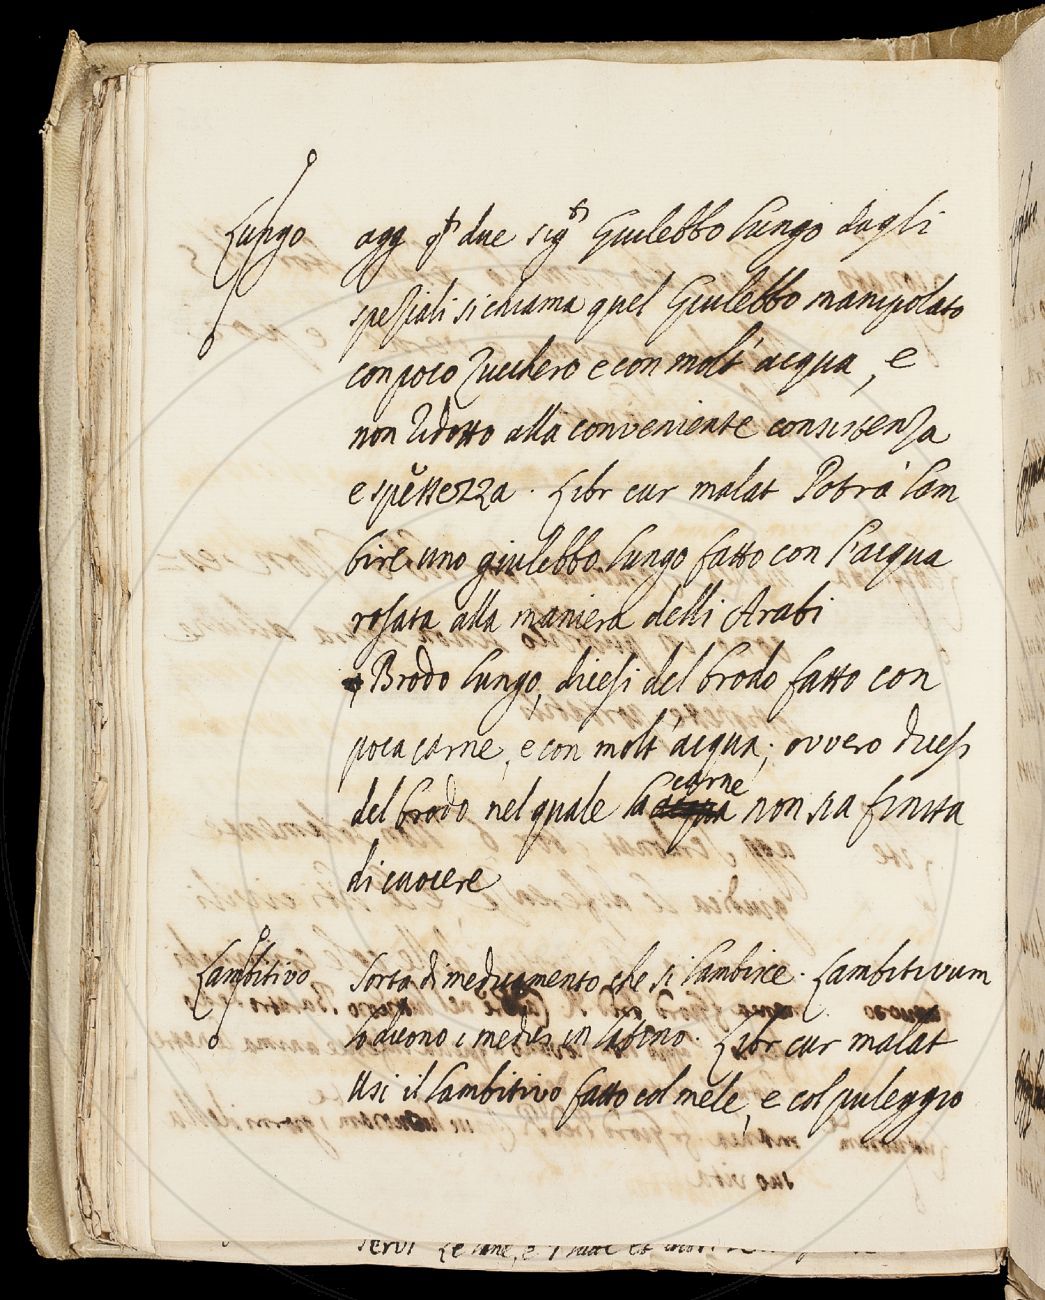 Lungo agg p due sigti Giulebbo lungo dagli
speziali si chiama quel Giulebbo manipolato
con poco Zucchero e con molt' acqua, e
non ridotto alla conveniente consistenza
e spessezza. Libr cur malat Potrà lam
bire uno giulebbo lungo fatto con l'acqua
rosata alla maniera delli Arabi
Brodo lungo, dicesi del brodo fatto con
poca carne, e con molt' acqua; ovvero dicesi
del brodo nel quale la carne non sia finita
di cuocere
Lambitivo Sorta di medicamento che si lambisce. Lambitivum
lo dicono i medici in latino. Libr cur malat
Usi il lambitivo fatto col mele, e col puleggio